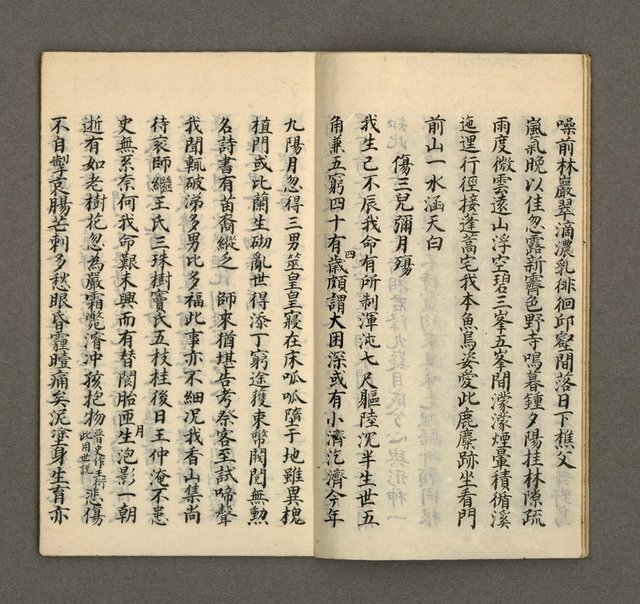 噪前林嚴翠滴濃乳徘徊邱壑間落日下樵父
嵐氣晚以佳忽露新霽色野寺鳴暮鍾夕陽挂林隙疏
雨度微雲遠山浮空碧三峯五峯間濛濛煙暈積循溪
迤邐行徑接蓬蒿宅我本魚鳥姿愛此鹿麋跡坐看門
前山一水涵天白
傷三兒彌月殤
我生已不辰我命有所制渾沌七尺軀陸沈半生世五
角兼五窮四十有四歲頗謂大困深或有小濟汔今年
九陽月忽得三男筮皇皇寢在床呱呱墮于地雖異槐
植門或比蘭生砌亂世得添丁窮途獲束幣閥閱無勲
名詩書有苗裔縱之師來猶堪告考祭客至試啼聲
我聞輒破涕多男比多福此事亦不細況我香山集尚
待家師繼王氏三珠樹竇氏五枝桂後日王仲淹不患
史無系奈何我命艱未興而有替閱胎匝月生泡影一朝
逝有如老樹花忽為嚴霜斃濬冲孩抱物晉史作王衍此用世説悲傷
不自掣哀腸芒刺多愁眼昏霾曀痛矣泥塗身生育亦